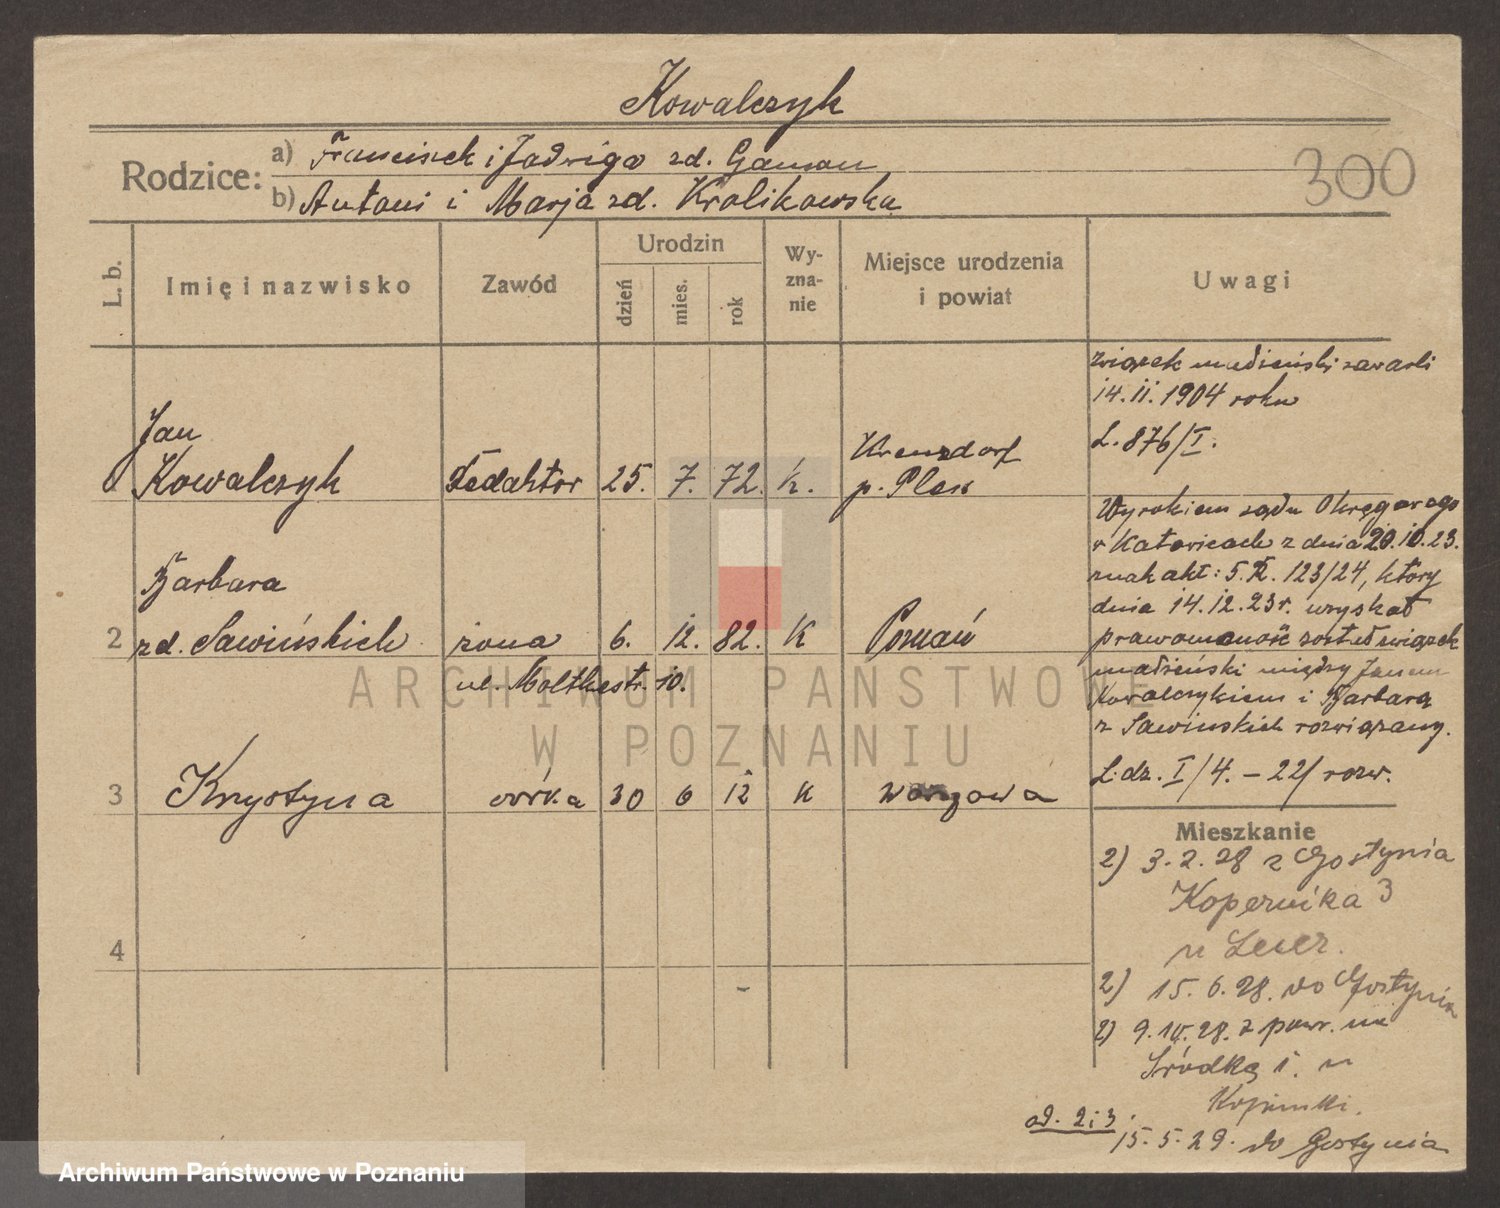 Kowalczyk
Rodzice:
a) Franciszek i Jadwiga zd.
b) Antoni i Marja zd. Krolikowska
300
L. b.
Imię i nazwisko
Zawód
Urodzin
dzień
mies.
rok
Wy-
zna-
nie
Miejsce urodzenia
i powiat
Uwagi
Jan
Kowalczyk
redaktor 25. 7. 72. k.
p. Pless
związek małżeński zawarli
14. II. 1904 roku
L. 876/I.
Barbara
2 zd. Sawińskich żona 6. 12. 82. K Poznań
ul. Moltkestr. 10.
Wyrokiem sądu Okręgowego
w Katowicach z dnia 20.10.23.
znak akt: 5.R. 123/24, który
dnia 14.12.23r. uzyskał
prawomocność został związek
małżeński między Janem
Kowalczykiem i Barbarą
z Sawińskich rozwiązany.
L.dz. I/4. – 22/ rozw.
3 Krystyna córka 30 6 12 K Warszawa
4
Mieszkanie
2) 3.2.28 z Gostynia
Kopernika 3
u
2) 15.6.28. do Gostynia
2) 9.10.28. z powr. na
Śródkę 1. u
ad. 2 i 3.
15.5.29. do Gostynia
ARCHIWUM PAŃSTWOWE
W POZNANIU
Archiwum Państwowe w Poznaniu